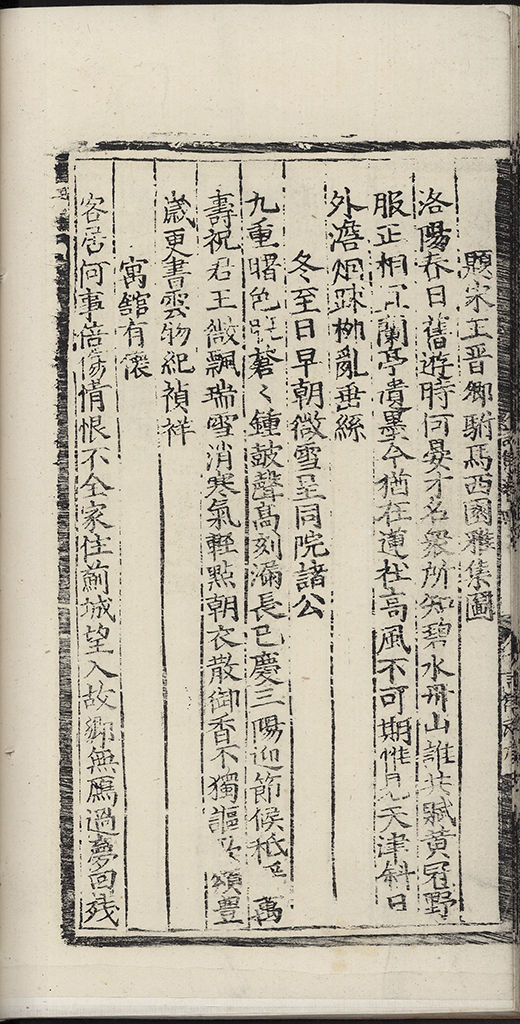 題宋王晉卿駙馬西園雅集圖
洛陽春日舊遊時何晏才名衆所知碧水丹山誰共賦黃冠野
服正相宜蘭亭遺墨今猶在蓮社高風不可期惟見天津斜日
外澹烟踈栁亂垂絲
冬至日早朝微雪呈同院諸公
九重曙色蒼〻鍾皷聲高刻漏長已慶三陽迎節候秪萬
壽祝君王微飄瑞雪消寒氣輕點朝衣散御香不獨謳歌頌豊
歲更書雲物紀禎祥
寓舘有懷
客居何事倍傷情恨不全家住薊城望入故鄉無鴈過夢回殘